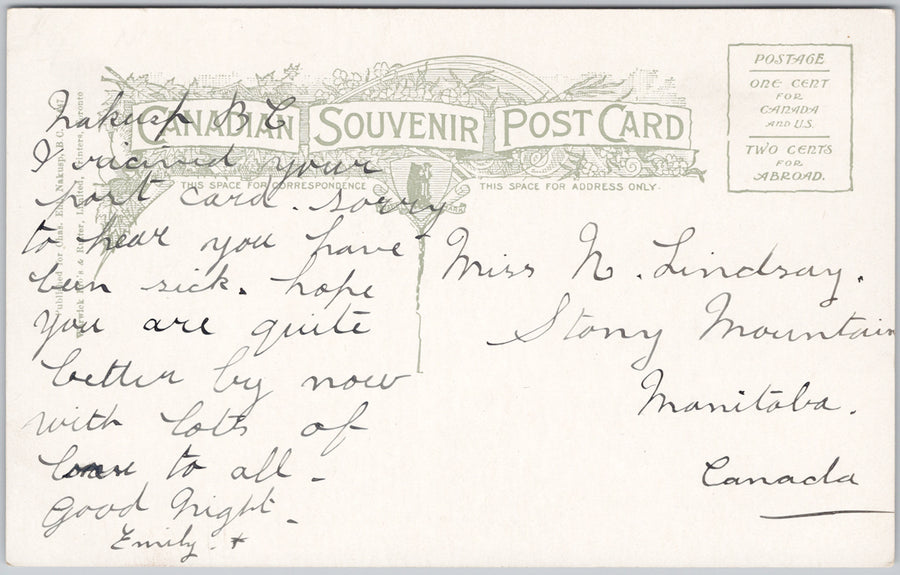 CANADIAN SOUVENIR POST CARD
THIS SPACE FOR CORRESPONDENCE
THIS SPACE FOR ADDRESS ONLY.
POSTAGE
ONE CENT
FOR
CANADA
AND U.S.
TWO CENTS
FOR
ABROAD.
Published for Chas. E. Nakusp, B.C.
Warwick Bro's & Rutter, Limited, Printers, Toronto
Nakusp B C
I recieved your
post card. sorry
to hear you have
been sick. hope
you are quite
better by now
with lots of
to all.
Good Night.
Emily. x
Miss N. Lindsay.
Stony Mountain
Manitoba.
Canada